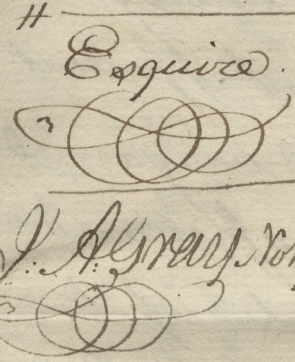 Esquire.
J: A: Gray